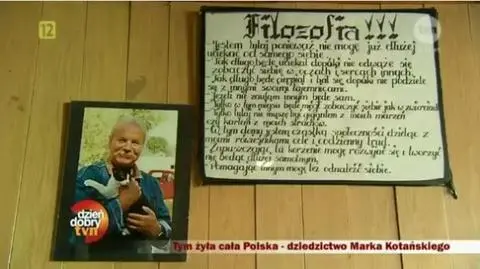 12
Filozofia!!!
- Jestem tutaj ponieważ nie mogę już dłużej
uciekać od samego siebie
- Jak długo będę uciekał dopóki nie odważę się
zobaczyć siebie w oczach i sercach innych.
- Jak długo będę cierpiał i bał się dopóki nie podzielę
się z innymi swoimi tajemnicami.
- Jeżeli nie zaufam innym będę sam.
- Tylko w tym miejscu będę mógł zobaczyć siebie jak w
Tylko tutaj nie muszę być gigantem z moich marzeń
czy karłem z moich strachów.
- W tym domu jestem cząstką społeczności dzieląc z
moimi rówieśnikami cele i codzienny trud.
- Zapuszczając tu korzenie mogę rozwijać się i tworzyć
nie będąc dłużej samotnym,
- Pomagając innym mogę też odnaleźć siebie.
dzień
dobry
tvn
Tym żyła cała Polska - dziedzictwo Marka Kotańskiego